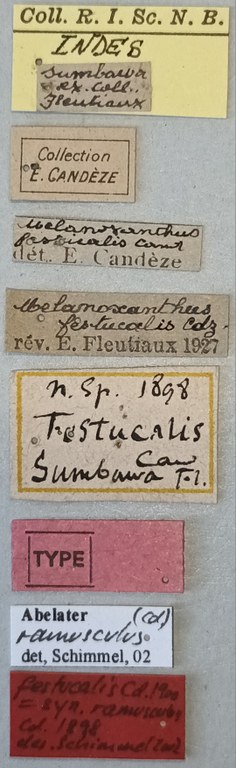 Coll. R. I. Sc. N. B.
INDES
Sumbawa
ex. Coll.
Fleutiaux
Collection
E. CANDÈZE
Melanoxanthus
festucalis Cand
dét. E. Candèze
Melanoxanthus
festucalis Cdz.
rév. E. Fleutiaux 1927
n. Sp. 1898
Festucalis
Cand
Sumbawa Fl.
TYPE
Abelater (Cd)
ramusculus
det, Schimmel, 02
festucalis Cd. 1900
= syn. ramusculus
Cd. 1898
det. Schimmel